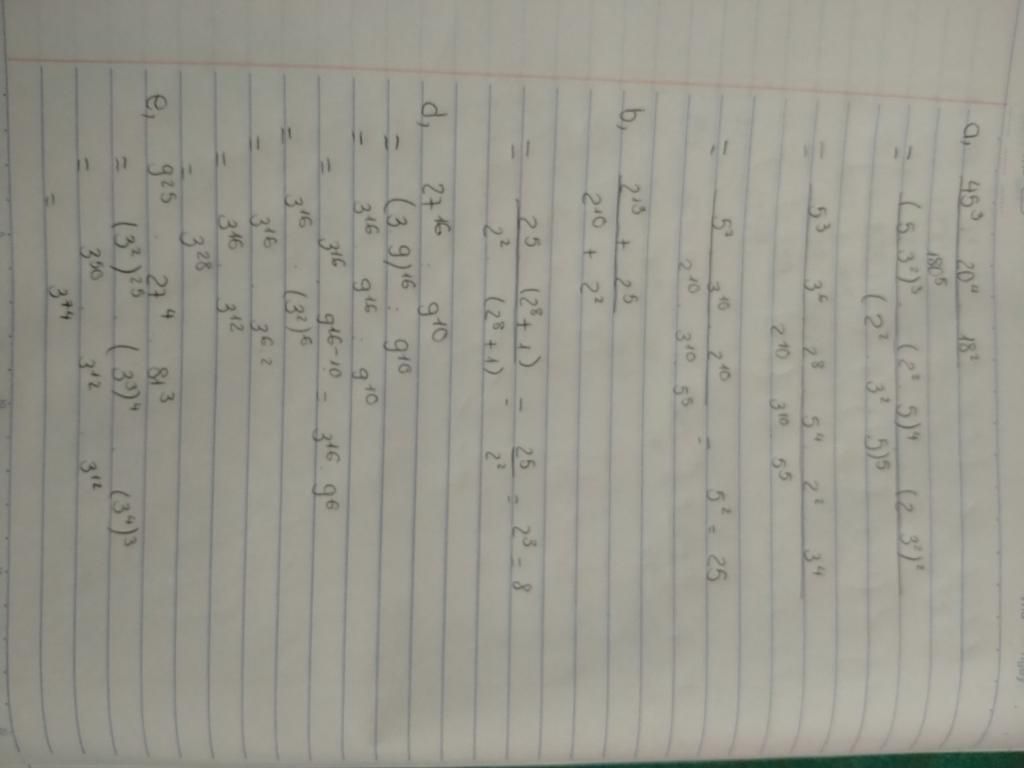 a, 45³ 20⁴ 18²
180⁵
= (5 3²)³ (2² 5)⁴ (2 3²)²
(2² 3² 5)⁵
= 5³ 3⁶ 2⁸ 5⁴ 2² 3⁴
2¹⁰ 3¹⁰ 5⁵
= 5⁷ 3¹⁰ 2¹⁰ = 5² = 25
2¹⁰ 3¹⁰ 5⁵
b, 2¹³ + 2⁵
2¹⁰ + 2²
= 2⁵ (2⁸ + 1) = 2⁵ = 2³ = 8
2² (2⁸ + 1) 2²
d, 27¹⁶ : 9¹⁰
= (3 9)¹⁶ : 9¹⁰
= 3¹⁶ 9¹⁶ : 9¹⁰
= 3¹⁶ 9¹⁶⁻¹⁰ = 3¹⁶ . 9⁶
= 3¹⁶ . (3²)⁶
= 3¹⁶ 3⁶·²
= 3¹⁶ 3¹²
= 3²⁸
e, 9²⁵ 27⁴ 81³
= (3²)²⁵ (3³)⁴ (3⁴)³
= 3⁵⁰ 3¹² 3¹²
= 3⁷⁴